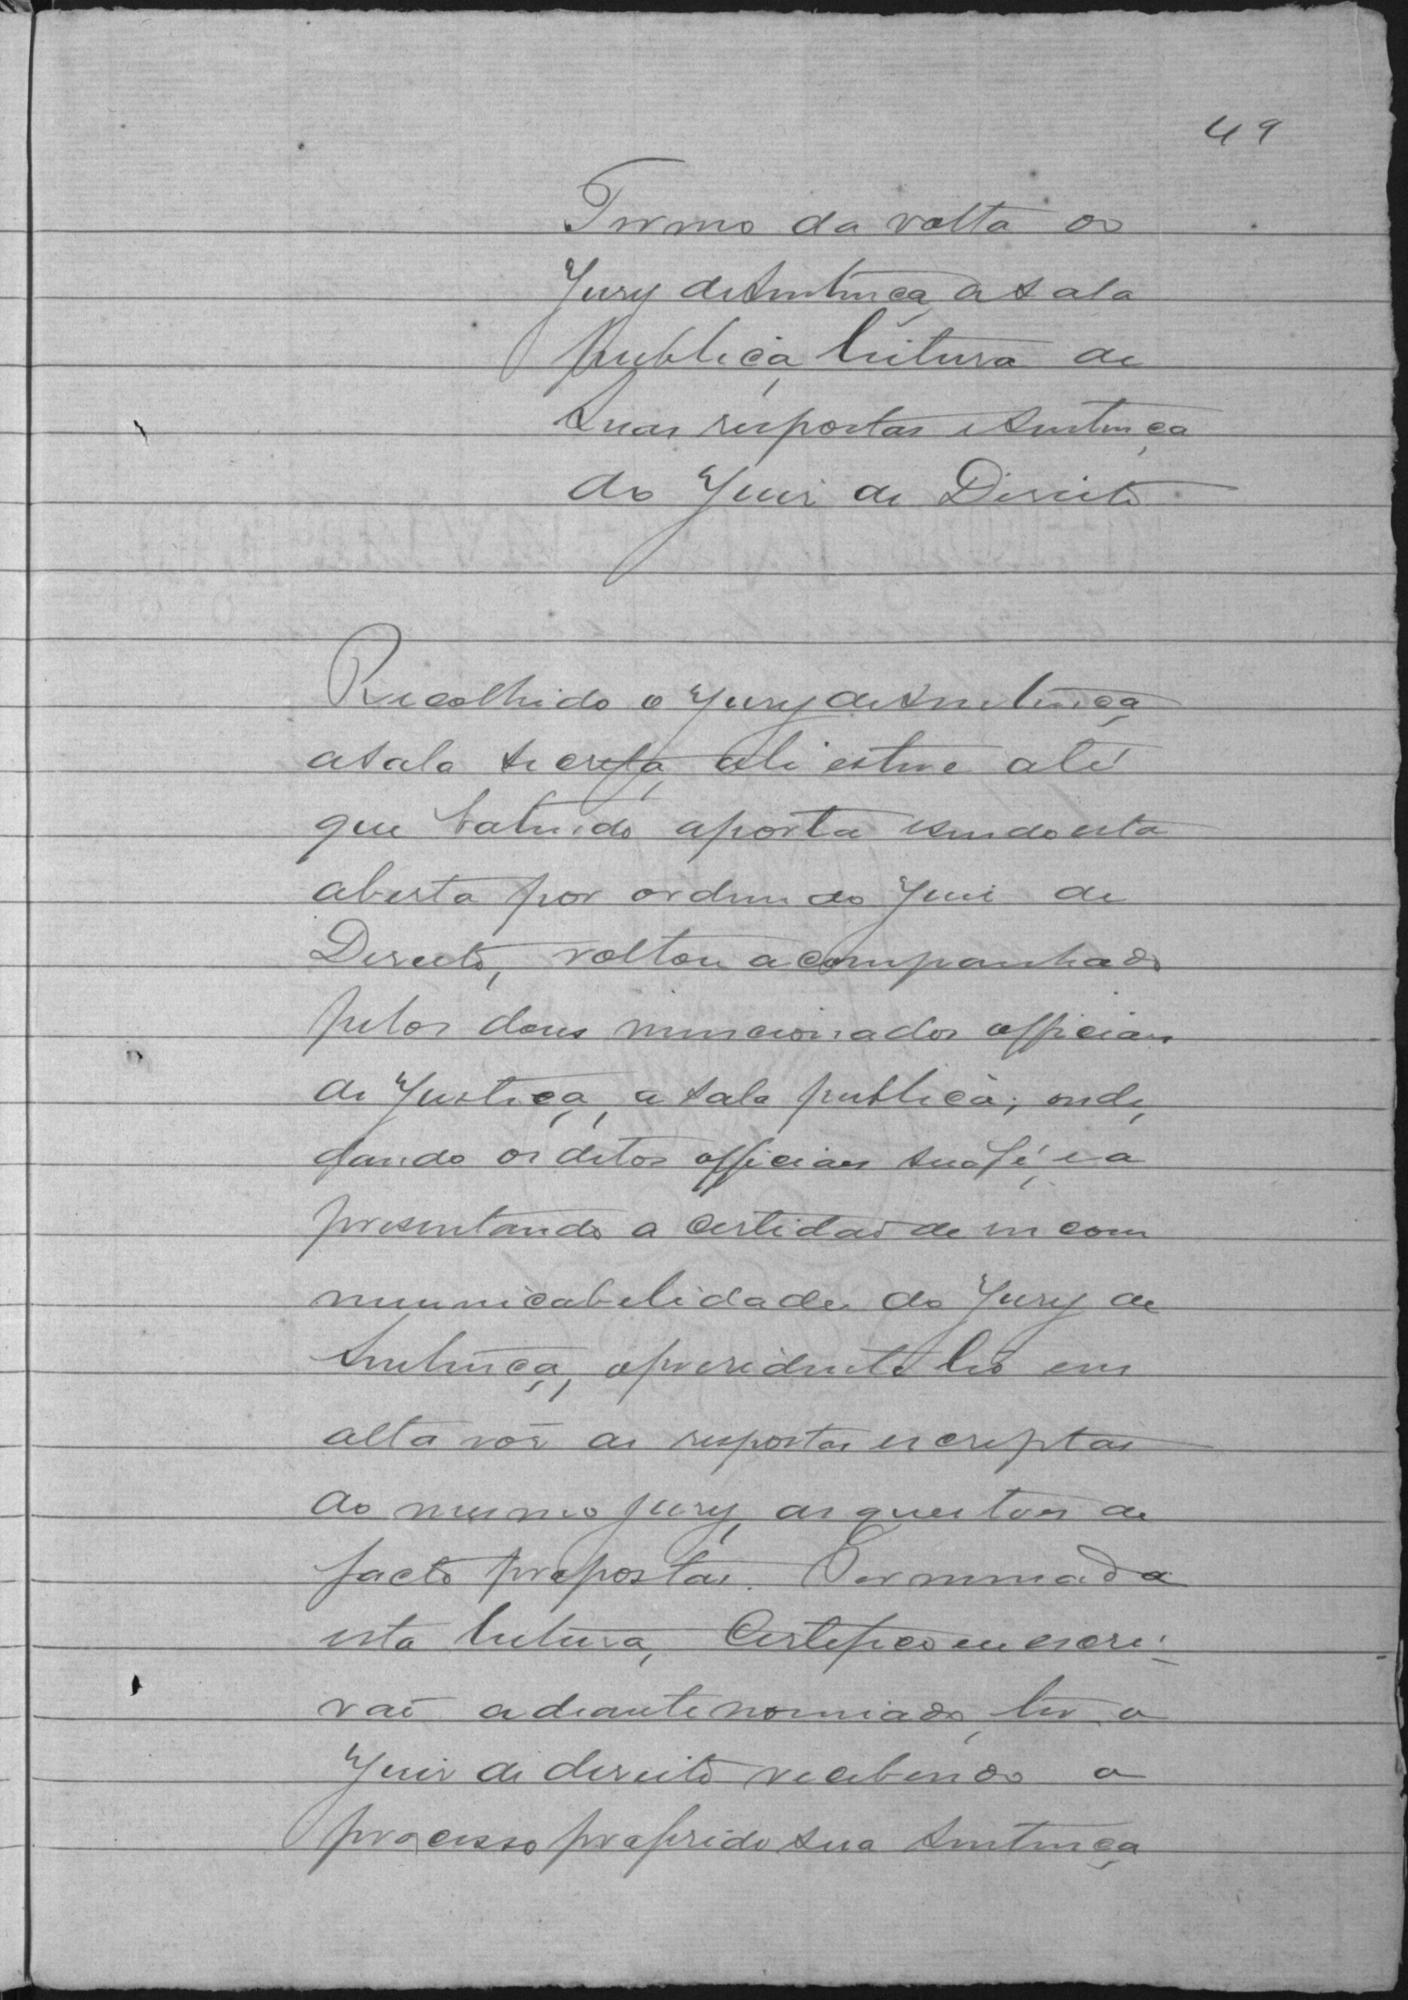 49
Termo da volta do
Jury de Sentença a sala
publica, leitura de
suas respostas e sentença
do Juiz de Direito
Recolhido o Jury de Sentença
a sala secreta, ali esteve até
que batendo a porta e sendo esta
aberta por ordem do Juiz de
Direito, voltou acompanhado
pelos dous mencionados officiaes
de Justiça, a sala publica; onde,
dando os ditos officiaes sua fé, e a
presentando a certidaõ de incom
municabelidade do Jury de
Sentença, o presidente leo em
alta vóz as respostas escreptas
do mesmo jury, as questoes de
facto propostas. Terminada
esta leitura, Certefico eu escri-
vaõ adeante nomiado, ter o
Juiz de direito recebendo o
processo proferido sua sentença